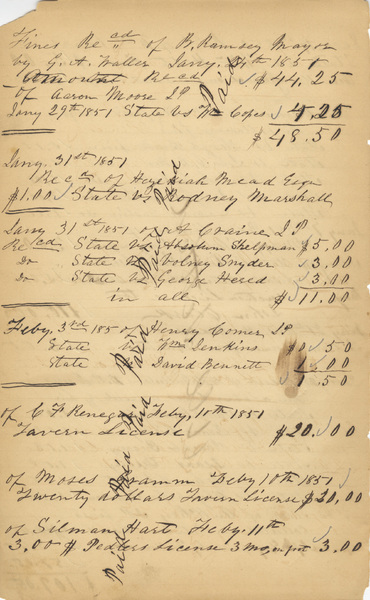 Fines Recd of B. Ramsey Mayor
by G. A. Waller Jany. 24th 1851
Amount Recd $44.25
of Aaron Moore J.P.
Jany 29th 1851 State vs Wm Copes 4.25
$48.50
Jany. 31st 1851
Recd of Hezekiah Mead Esqr
$1.00 State vs Rodney Marshall
Jany 31st 1851 of A Craine J.P.
Recd State vs. Absolum Shelpman $5.00
Do State vs Volney Snyder 3.00
Do State vs George Hered 3.00
in all $11.00
Feby. 3rd 185 of Henry Comer J.P.
State vs. Wm Jenkins $0.50
State vs David Bennett 1.00
1.50
of C F Feby. 10th 1851
Tavern License $20.00
of Moses Feby 10th 1851
Twenty dollars Tavern License $20.00
of Silman Hart Feby. 11th
3.00 $ Pedlers License 3 3.00
Paid
Paid
Paid
Paid
Paid
Paid
Paid